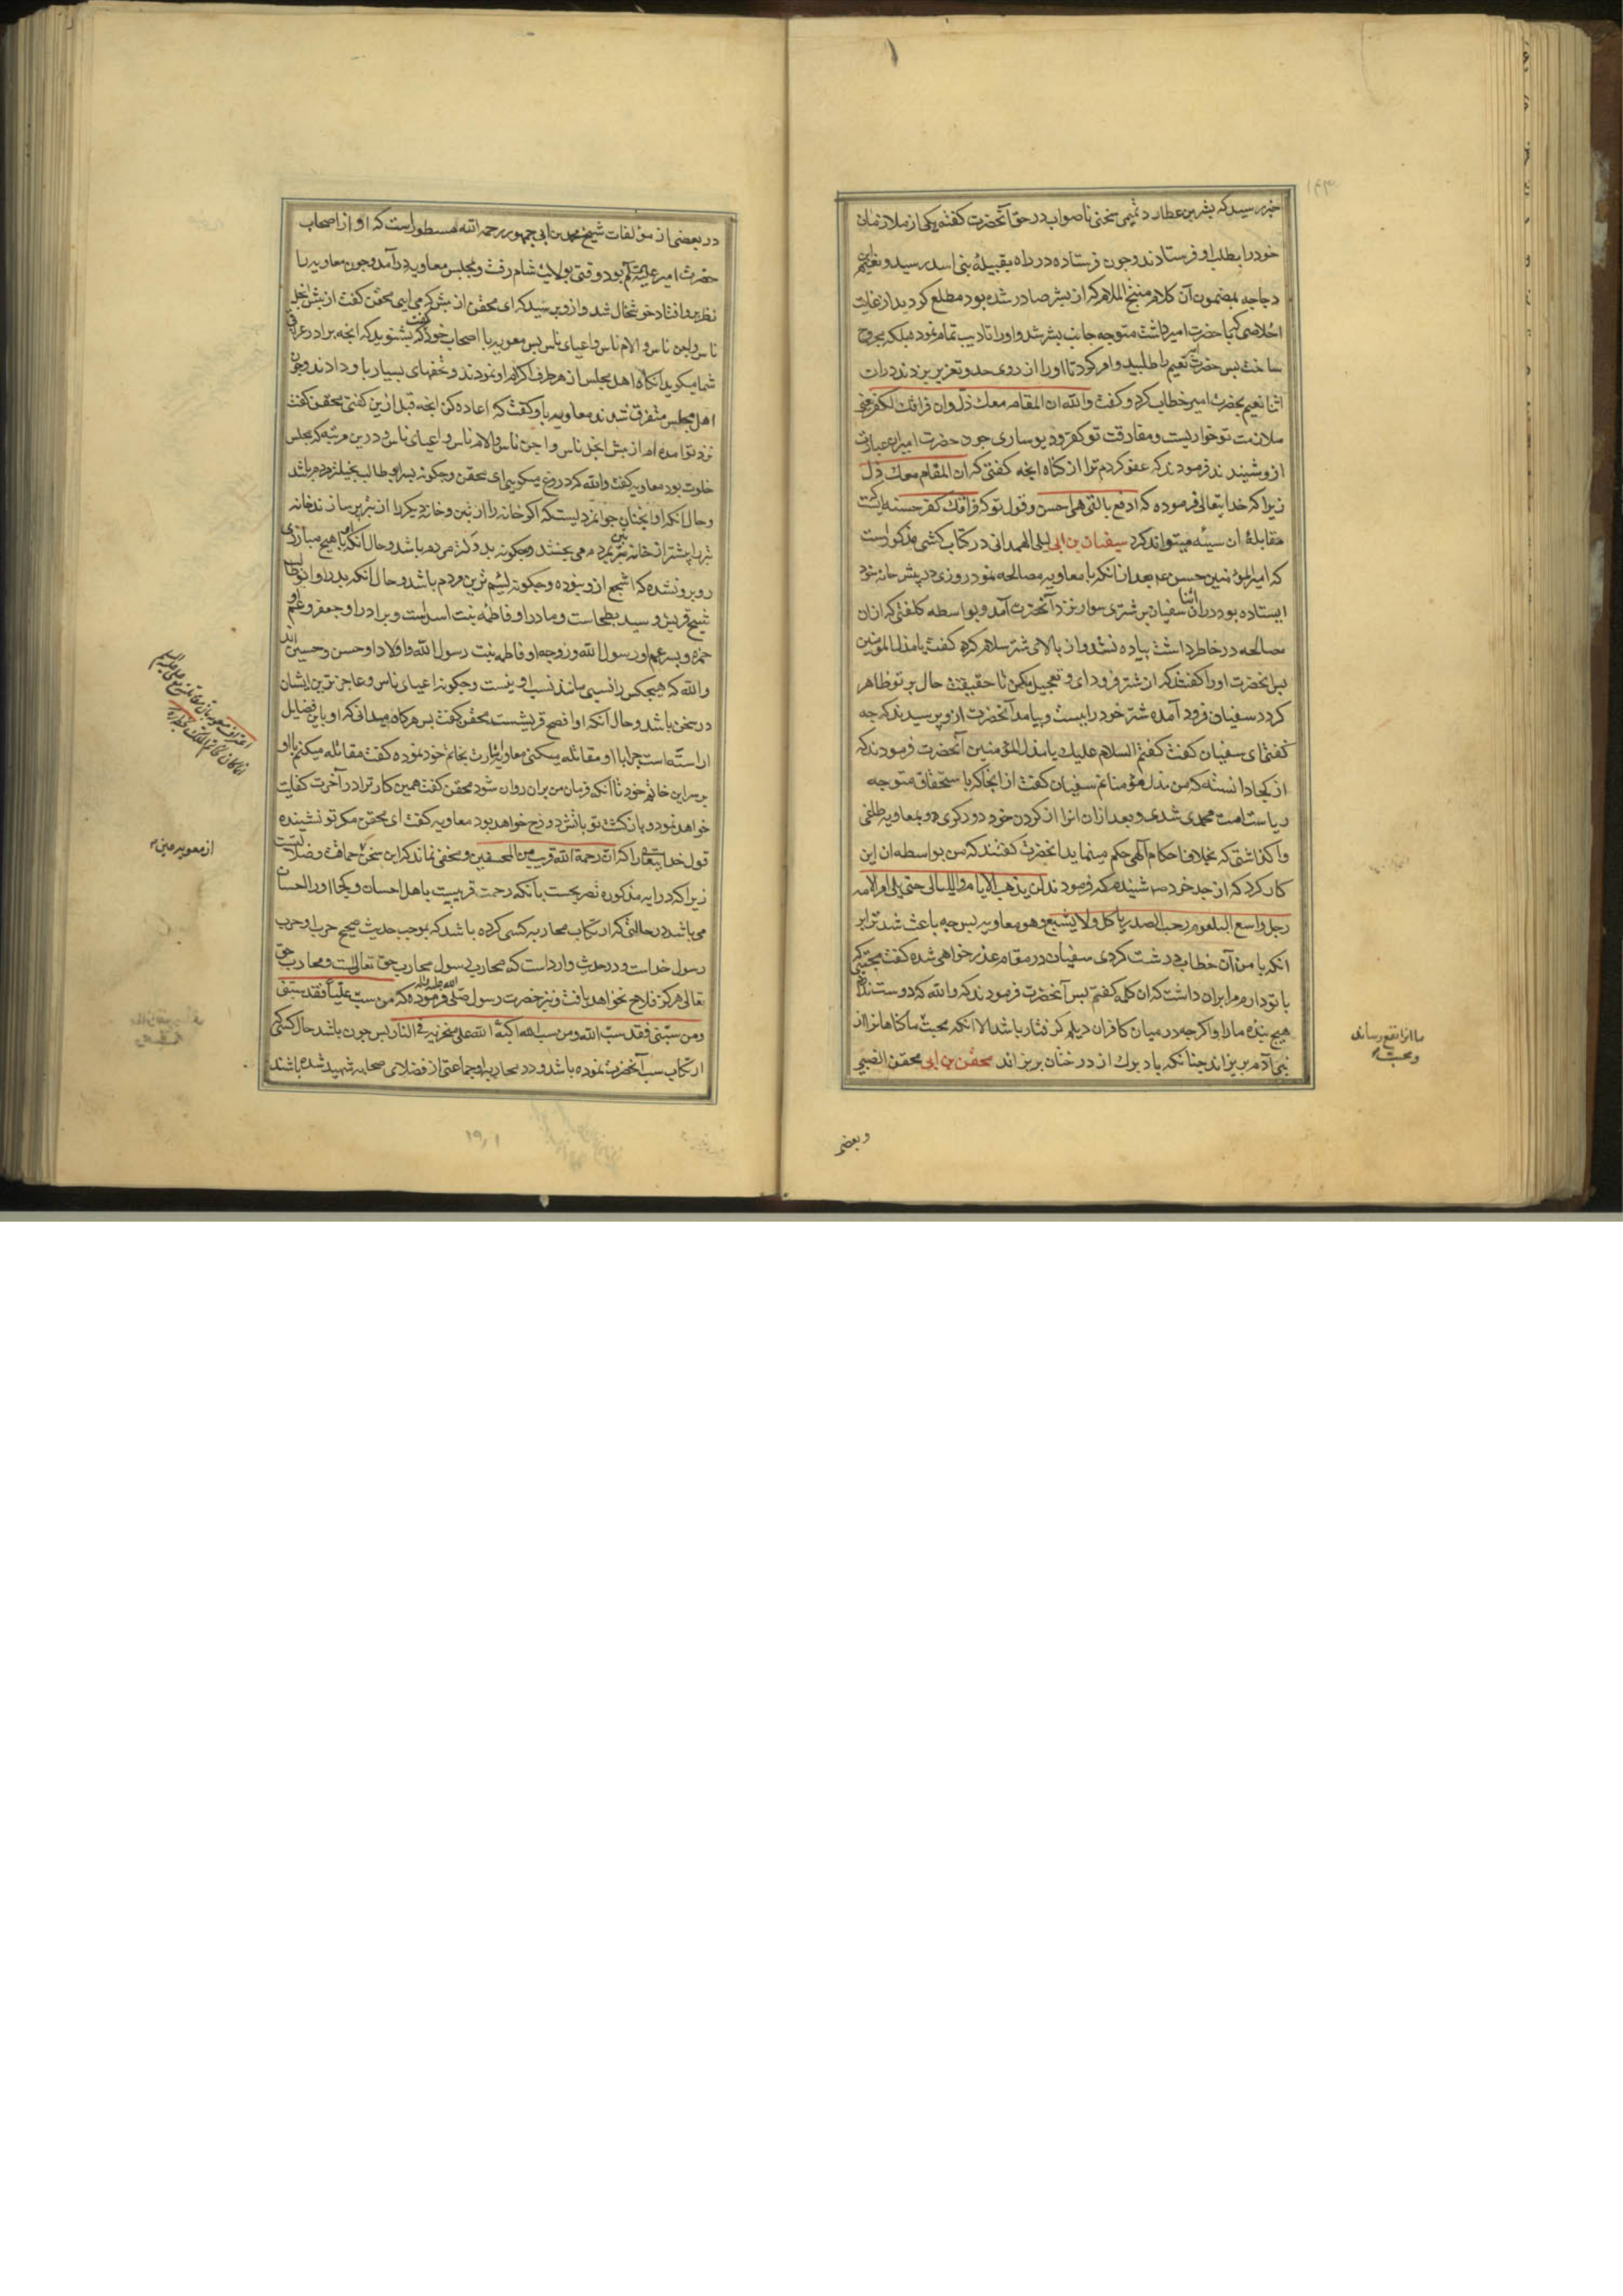 خبر رسید که بشر بن عطارد تمیمی سخنی ناصواب در حق آنحضرت کفته یکی از ملازمان
خود را بطلب او فرستادند و جون فرستاده در راه بقبیله بنی اسد رسید و نعیم بن
دجاجه بمضمون آن کلام که از بشر صادر شده بود مطلع کردید از غایت
اخلاصی که با حضرت امیر داشت متوجه جانب بشر شد و اورا تادیب تمام نمود بلکه مجروح
ساخت بس حضرت امیر نعیم را طلبید و امر کرد تا اورا از روی حد و تعزیر بزدند در ان
اثنا نعیم بحضرت امیر خطاب کرد و کفت والله ان المقام معك ذل وان فراقك لکفر یعنی
ملازمت تو خواریست و مفارقت تو کفر و دیو ساری جون حضرت امیر این عبارت
ازو شنیدند فرمودند که عفو کردم ترا از کناه انجه کفتی که ان المقام معك ذل
زیرا که خدایتعالی فرموده که ادفع بالتی هی احسن و قول تو که فراقك کفر حسنه ایست که
مقابلهٔ ان سیئه میتواند کرد سفیان بن ابی لیلی الهمدانی در کتاب کشی مذکور است
که امیر المؤمنین حسن ع م بعد از انکه با معاویه مصالحه نمود روزی در پیش خانه خود
ایستاده بود در ان اثنا سفیان بر شتری سوار نزد آنحضرت آمد و بواسطه کلفتی که از ان
مصالحه در خاطر داشت پیاده نشد و از بالای شتر سلام کرد کفت یا مذل المؤمنین
بس انحضرت اورا کفتند که از شتر فرود ای و تعجیل مکن تا حقیقت حال بر تو ظاهر
کردد سفیان فرود آمده شتر خود را ببست و پیامد آنحضرت ازو پرسیدند که جه
کفتی ای سفیان کفت کفتم السلام علیك یا مذل المؤمنین آنحضرت فرمودند که
از کجا دانسته که من مذل مؤمنانم سفیان کفت از انجا که باستحقاق متوجه
ریاست امت محمدی شدی و بعد از ان انرا از کردن خود دور کردی و بمعاویه طلغی
واکذاشتی که بخلاف احکام آلهی حکم مینماید انحضرت کفتند که من بواسطه ان این
کار کرد که از جد خود ص شنیدم که فرمودند لن یذهب الایام واللیالی حتی یلی امر الامه
رجل واسع البلعوم رحب الصدر یاکل ولا یشبع وهو معاویه بس جه باعث شد ترا بر
انکه با من آن خطاب درشت کردی سفیان در مقام عذر خواهی شده کفت محبتی که
با تو دارم مرا بران داشت که ان کلمه کفتم بس آنحضرت فرمودند که والله که دوست ندارد
هیج بنده مارا و اکرجه در میان کافران دیلم کرفتار باشد الا انکه محبت ما کناهانرا از
بنی آدم بریزاند جنانکه باد برك از درختان بریزاند محقن بن ابی محقن الضبی
ما اورا نفع رساند
و محبت
و بعضی
در بعضی از مؤلفات شیخ محمد بن ابی جمهور رحمه الله مسطور است که او از اصحاب
حضرت امیر بود وقتی بولایت شام رفت و بمجلس معاویه درآمد و جون معاویه را
نظر برو افتاد خوشحال شد و ازو پرسید که ای محقن از بیش که می ایی محقن کفت از بیش ابخل
ناس و اجبن ناس و الام ناس و اعیای ناس بس معویه با اصحاب خود کفت که بشنوید که انجه برادر عراقی
شما میکوید انکاه اهل مجلس از هر طرف اکرام او نمودند و تحفهای بسیار باو دادند و جون
اهل مجلس متفرق شدند معاویه باو کفت که اعاده کن انجه قبل ازین کفتی محقن کفت
نزد تو امده ام از بیش ابخل ناس و اجبن ناس و الام ناس و اعیای ناس و درین مرتبه که مجلس
خلوت بود معاویه کفت والله که دروغ میکویی ای محقن و جکونه پسر ابو طالب بخیلترین مردم باشد
و حال انکه او انجنان جوانمردیست که اکر خانه را از تبن و خانه دیکر را از تبر پر سازند خانه
تبر را پیشتر از خانه تبن بمردم می بخشد و جکونه بددلترین مردم باشد و حال انکه با هیج مبارزی
روبرو نشده که اشجع ازو بوده و جکونه لئیم ترین مردم باشد و حال انکه بدر او ابوطالب
شیخ قریش و سید بطحاست و مادر او فاطمه بنت اسد است و برادر او جعفر و عم او
حمزه و بسر عم او رسول الله و زوجه او فاطمه بنت رسول الله و اولاد او حسن و حسین اند
والله که هیجکس را نسبی مانند نسب او نیست و جکونه اعیای ناس و عاجزترین ایشان
در سخن باشد و حال آنکه او افصح قریشست محقن کفت بس هرکاه میدانی که او باین فضایل
اراسته است جرا با او مقاتله میکنی معاویه اشارت بخاتم خود نموده کفت مقاتله میکنم با او
بر سر این خاتم خود تا آنکه فرمان من بران روان شود محقن کفت همین کار ترا در آخرت کفایت
خواهد نمود و بازکشت تو باتش دوزخ خواهد بود معاویه کفت ای محقن مکر تو نشنیده
قول خدایتعالی را که ان رحمة الله قریب من المحسنین و مخفی نماند که این سخن حماقت و ضلالتست
زیرا که در ایه مذکوره تصریحست بانکه رحمت قریبست باهل احسان و کجا اورا احسان
می باشد در حالتی که ارتکاب محاربه کسی کرده باشد که بموجب حدیث صحیح حرب او حرب
رسول خداست و در حدیث وارد است که محارب رسول محارب حق تعالی است و محارب حق
تعالی هرکز فلاح نخواهد یافت و نیز حضرت رسول صلی الله علیه و آله فرموده که من سب علیا فقد سبنی
ومن سبنی فقد سب الله ومن سب الله اکبه الله علی منخریه فی النار بس جون باشد حال کسی که
ارتکاب سب آنحضرت نموده باشد و در محاربه او جماعتی از فضلای صحابه شهید شده باشند
از معویه مبن